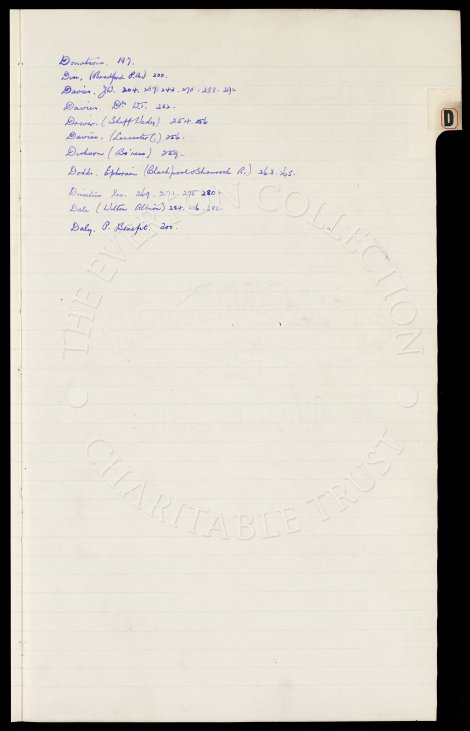 Donations. 197.
D
Dun, (Bradford P.A.) 200.
Davies, J.W. 204. 207. 242. 270. 283. 292
Davies. Dr. D.J. 222.
Dower. (Sheff Wedy) 254. 256
Davies. (Leicester C.) 256.
Dickson (Bo'ness) 259.
Dodds. Ephraim (Blackpool & Shamrock R.) 263. 265.
Directors Xes. 269. 271. 275. 280.
Dale (Witton Albion) 284. 286. 288
Daly. P. Benefit. 300.
THE EVERTON COLLECTION
CHARITABLE TRUST